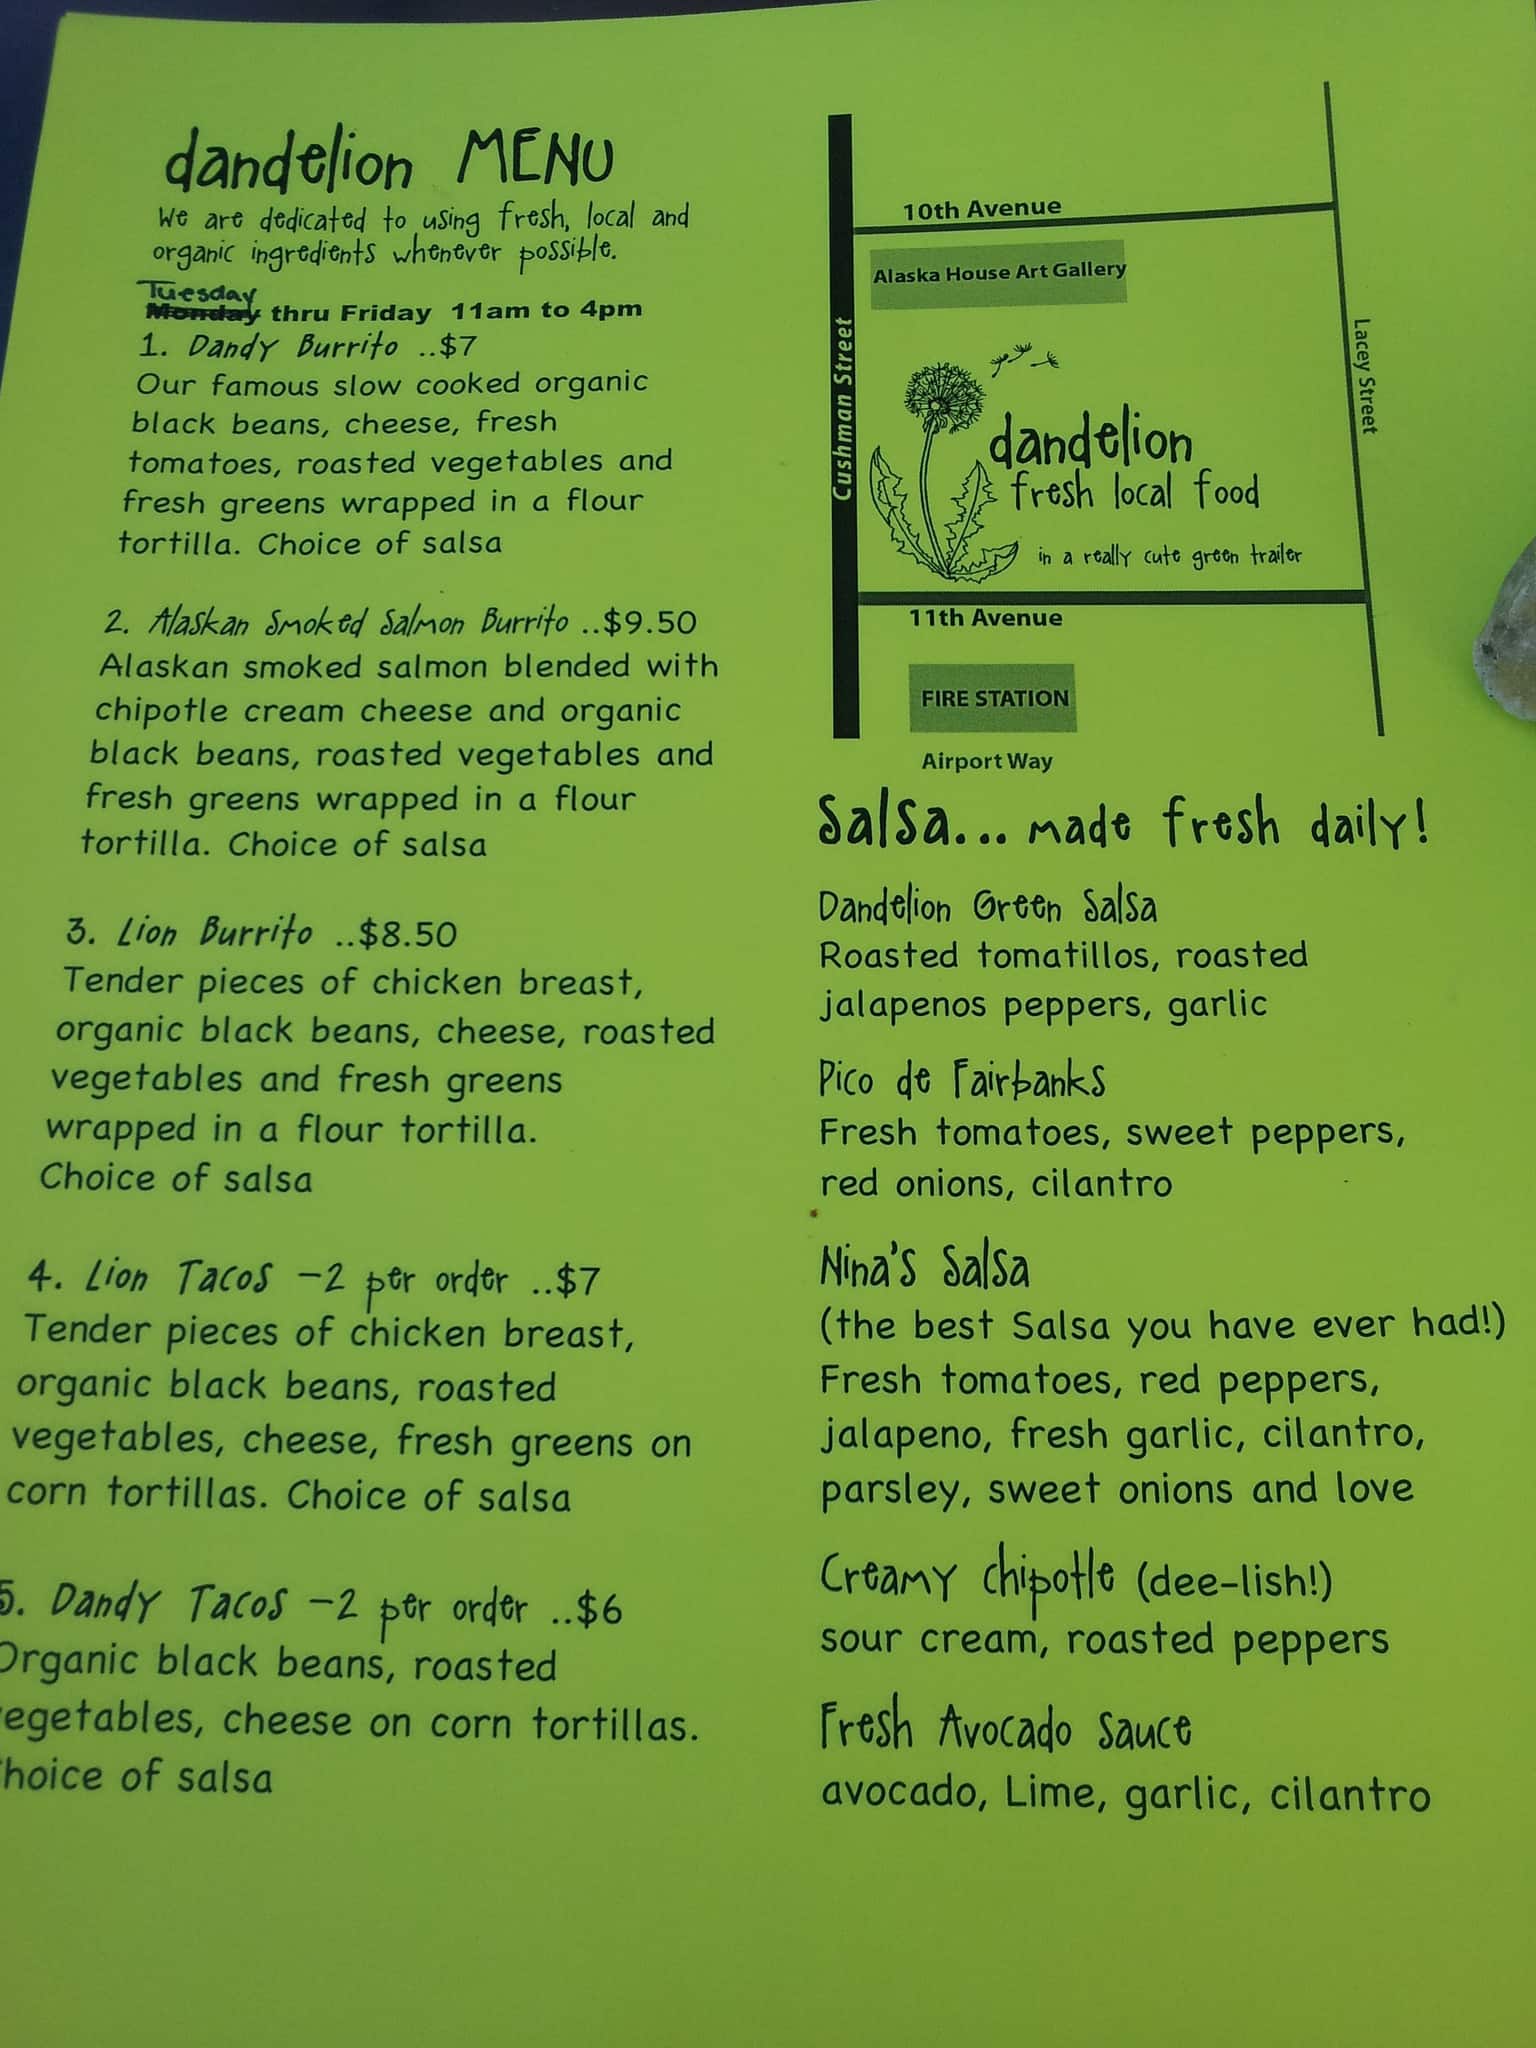 dandelion MENU
We are dedicated to using fresh, local and
organic ingredients whenever possible.
Tuesday
Monday thru Friday 11am to 4pm
1. Dandy Burrito ..$7
Our famous slow cooked organic
black beans, cheese, fresh
tomatoes, roasted vegetables and
fresh greens wrapped in a flour
tortilla. Choice of salsa
2. Alaskan Smoked Salmon Burrito ..$9.50
Alaskan smoked salmon blended with
chipotle cream cheese and organic
black beans, roasted vegetables and
fresh greens wrapped in a flour
tortilla. Choice of salsa
3. Lion Burrito ..$8.50
Tender pieces of chicken breast,
organic black beans, cheese, roasted
vegetables and fresh greens
wrapped in a flour tortilla.
Choice of salsa
4. Lion Tacos -2 per order ..$7
Tender pieces of chicken breast,
organic black beans, roasted
vegetables, cheese, fresh greens on
corn tortillas. Choice of salsa
5. Dandy Tacos -2 per order ..$6
Organic black beans, roasted
egetables, cheese on corn tortillas.
hoice of salsa
10th Avenue
Alaska House Art Gallery
Cushman Street
Lacey Street
dandelion
fresh local food
in a really cute green trailer
11th Avenue
FIRE STATION
Airport Way
Salsa... made fresh daily!
Dandelion Green Salsa
Roasted tomatillos, roasted
jalapenos peppers, garlic
Pico de Fairbanks
Fresh tomatoes, sweet peppers,
red onions, cilantro
Nina's Salsa
(the best Salsa you have ever had!)
Fresh tomatoes, red peppers,
jalapeno, fresh garlic, cilantro,
parsley, sweet onions and love
Creamy chipotle (dee-lish!)
sour cream, roasted peppers
Fresh Avocado Sauce
avocado, Lime, garlic, cilantro